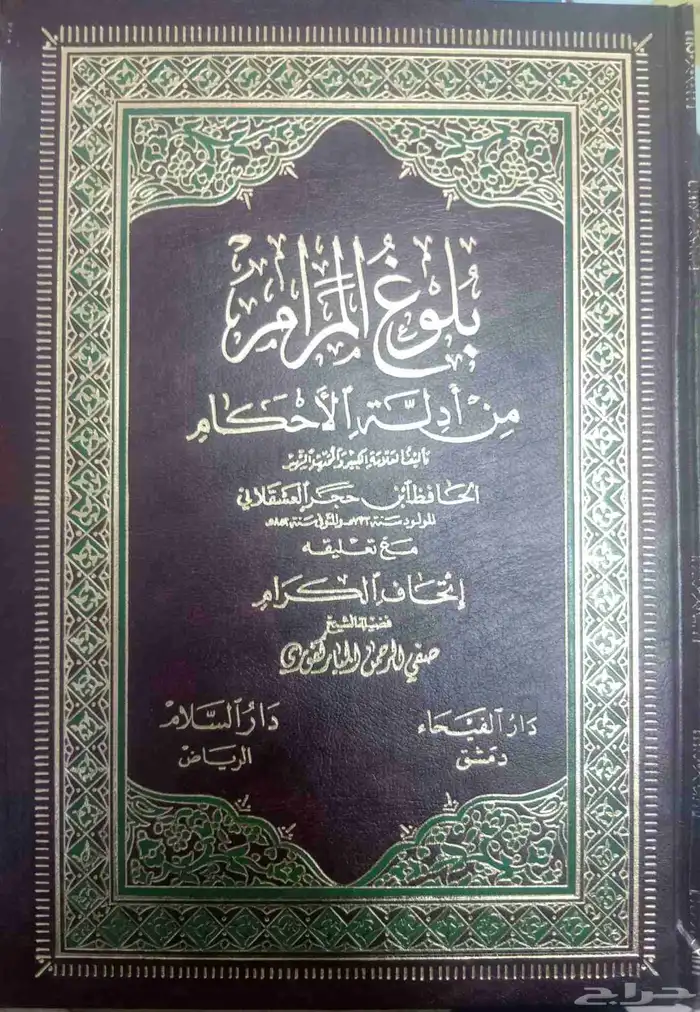 بُلُوغُ المَرَامِ
مِنْ أَدِلَّةِ الأَحْكَامِ
تأليف العلامة الكبير والمجتهد الشهير
الحافظ ابن حجر العسقلاني
المولود سنة ٧٧٣هـ والمتوفى سنة ٨٥٢هـ
مع تعليقه
إتحاف الكرام
فضيلة الشيخ
صفي الرحمن المباركفوري
دار الفيحاء
دمشق
دار السلام
الرياض
حراج